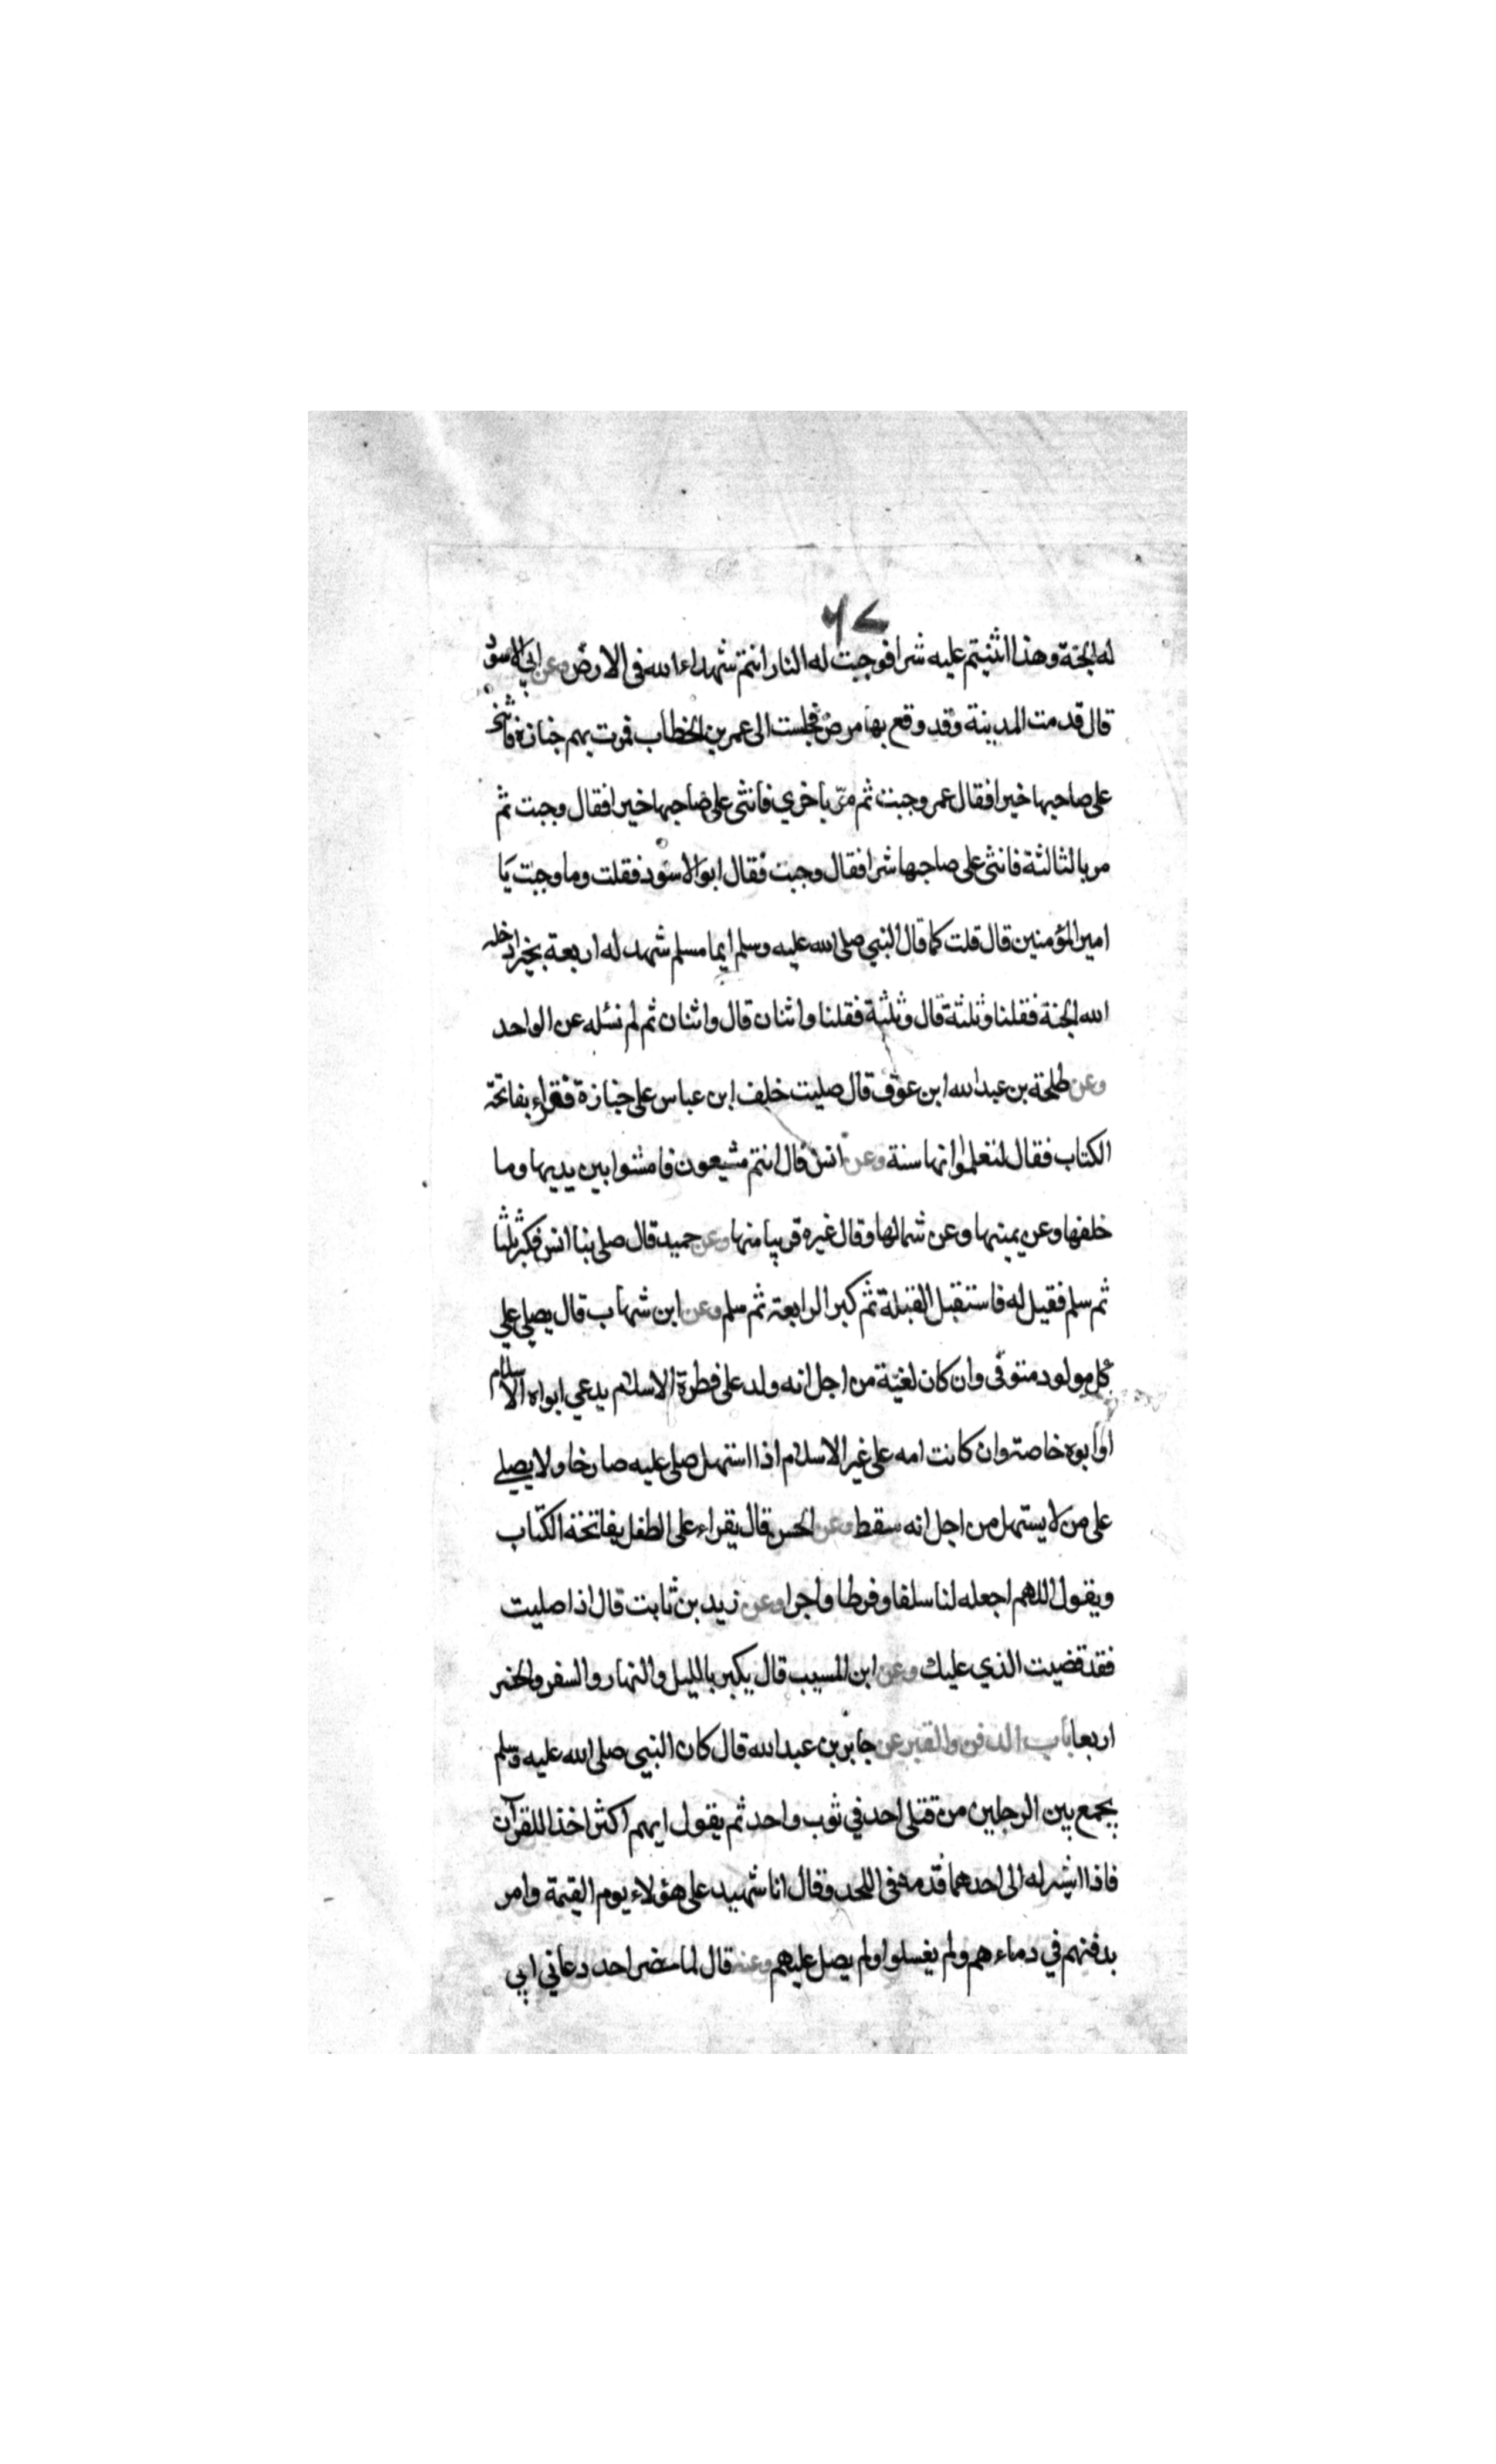 ٦٧
له الجنة وهذا اثنيتم عليه شرا فوجبت له النار انتم شهداء الله في الارض وعن ابي الاسود
قال قدمت المدينة وقد وقع بها مرض فجلست الى عمر بن الخطاب فمرت بهم جنازة فاثنى
على صاحبها خيرا فقال عمر وجبت ثم مرّ باخري فاثنى على صاحبها خيرا فقال وجبت ثم
مر بالثالثة فاثنى على صاحبها شرا فقال وجبت فقال ابو الاسود فقلت وما وجبت يا
امير المؤمنين قال قلت كما قال النبي صلى الله عليه وسلم ايما مسلم شهد له اربعة بخير ادخله
الله الجنة فقلنا وثلثة قال وثلثة فقلنا واثنان قال واثنان ثم لم نسئله عن الواحد
وعن طلحة بن عبدالله ابن عوف قال صليت خلف ابن عباس على جنازة فقراء بفاتحة
الكتاب فقال لتعلموا انها سنة وعن انس قال انتم مشيعون فامشوا بين يديها وما
خلفها وعن يمينها وعن شمالها وقال غيره قريبا منها وعن حميد قال صلى بنا انس فكبر ثلثا
ثم سلم فقيل له فاستقبل القبلة ثم كبر الرابعة ثم سلم وعن ابن شهاب قال يصلي علي
كل مولود متوفى وان كان لغية من اجل انه ولد على فطرة الاسلام يدعي ابواه الاسلام
او ابوه خاصة وان كانت امه على غير الاسلام اذا استهل صلى عليه صارخا ولا يصلي
على من لا يستهل من اجل انه سقط وعن الحسن قال يقراء على الطفل بفاتحة الكتاب
ويقول اللهم اجعله لنا سلفا وفرطا واجرا وعن زيد بن ثابت قال اذا صليت
فقد قضيت الذي عليك وعن ابن المسيب قال يكبر بالليل والنهار والسفر والحضر
اربعا باب الدفن والقبر عن جابر بن عبدالله قال كان النبي صلى الله عليه وسلم
يجمع بين الرجلين من قتلى احد في ثوب واحد ثم يقول ايهم اكثر اخذا للقرآن
فاذا اشير له الى احدهما قدمه في اللحد وقال انا شهيد على هؤلاء يوم القيمة وامر
بدفنهم في دماءهم ولم يغسلوا ولم يصل عليهم وعنه قال لما حضر احد دعاني ابي